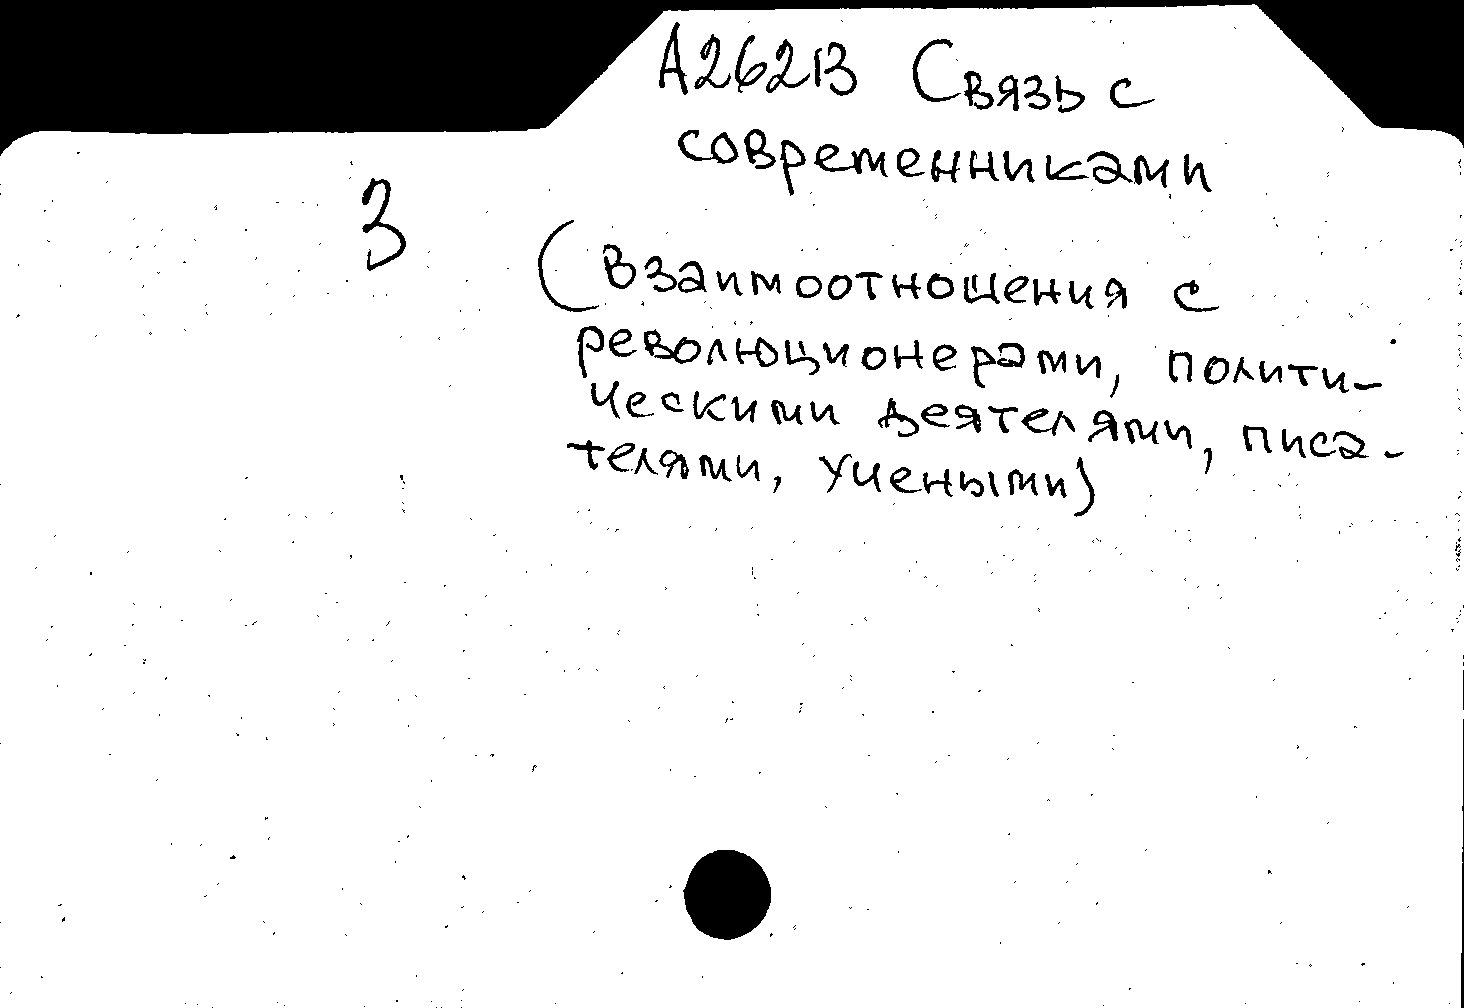 А262В Связь с
современниками
3
(взаимоотношения с
революционерами, полити-
ческими деятелями, писа-
телями, учеными)